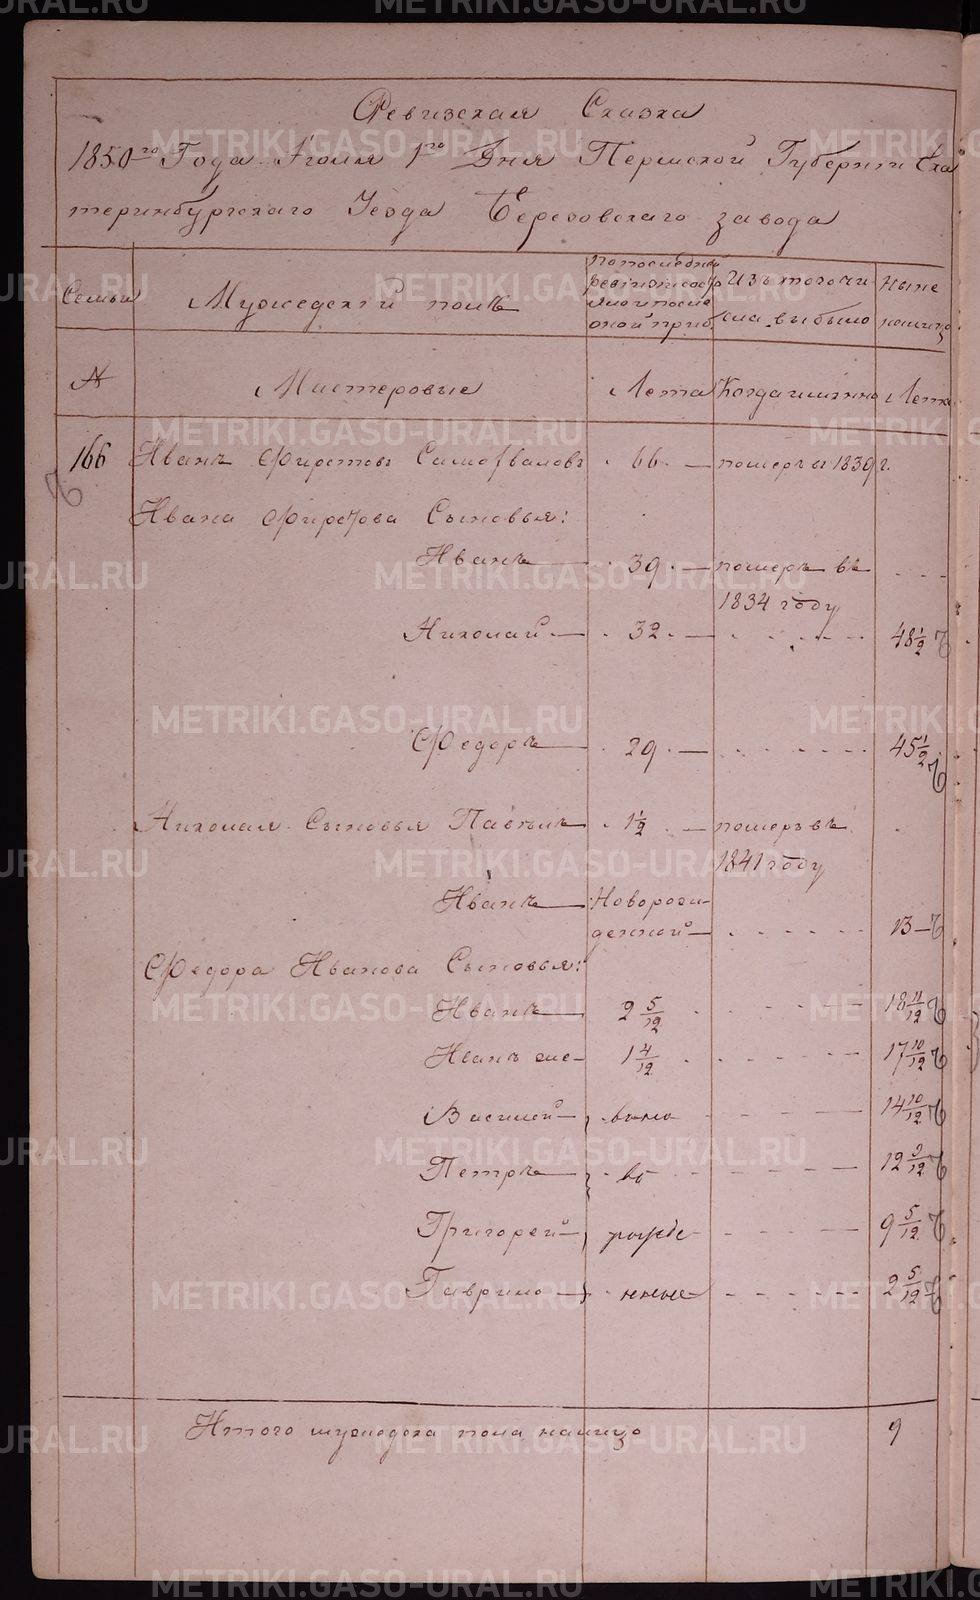 Ревизская Сказка
1850го Года Июля 1го Дня Пермской Губернии Ека
теринбургскаго Уезда Березовскаго завода
Семьи
Мужеский полъ
По последней
ревизии состо
яло и после
оной приб.
Изъ того чи
сла выбыло
Ныне
налицо
№
Мастеровые
Лета
Когда именно
Лета
166 Иванъ Фирстовъ Самохваловъ 66 померъ в 1839 г.
Ивана Фирстова Сыновья:
Иванъ 39 померъ въ
1834 году
Николай 32 48 1/2
Федоръ 29 45 1/2
Николая Сыновья Павелъ 1 1/2 померъ въ
1841 году
Иванъ Новорож-
денной 13
Федора Иванова Сыновья:
Иванъ 2 5/12 18 11/12
Иванъ же 1 4/12 17 10/12
Василей вново 14 10/12
Петръ 12 9/12
Григорей рожде 9 5/12
Гаврило нные 2 5/12
Итого мужеска пола налицо 9
METRIKI.GASO-URAL.RU